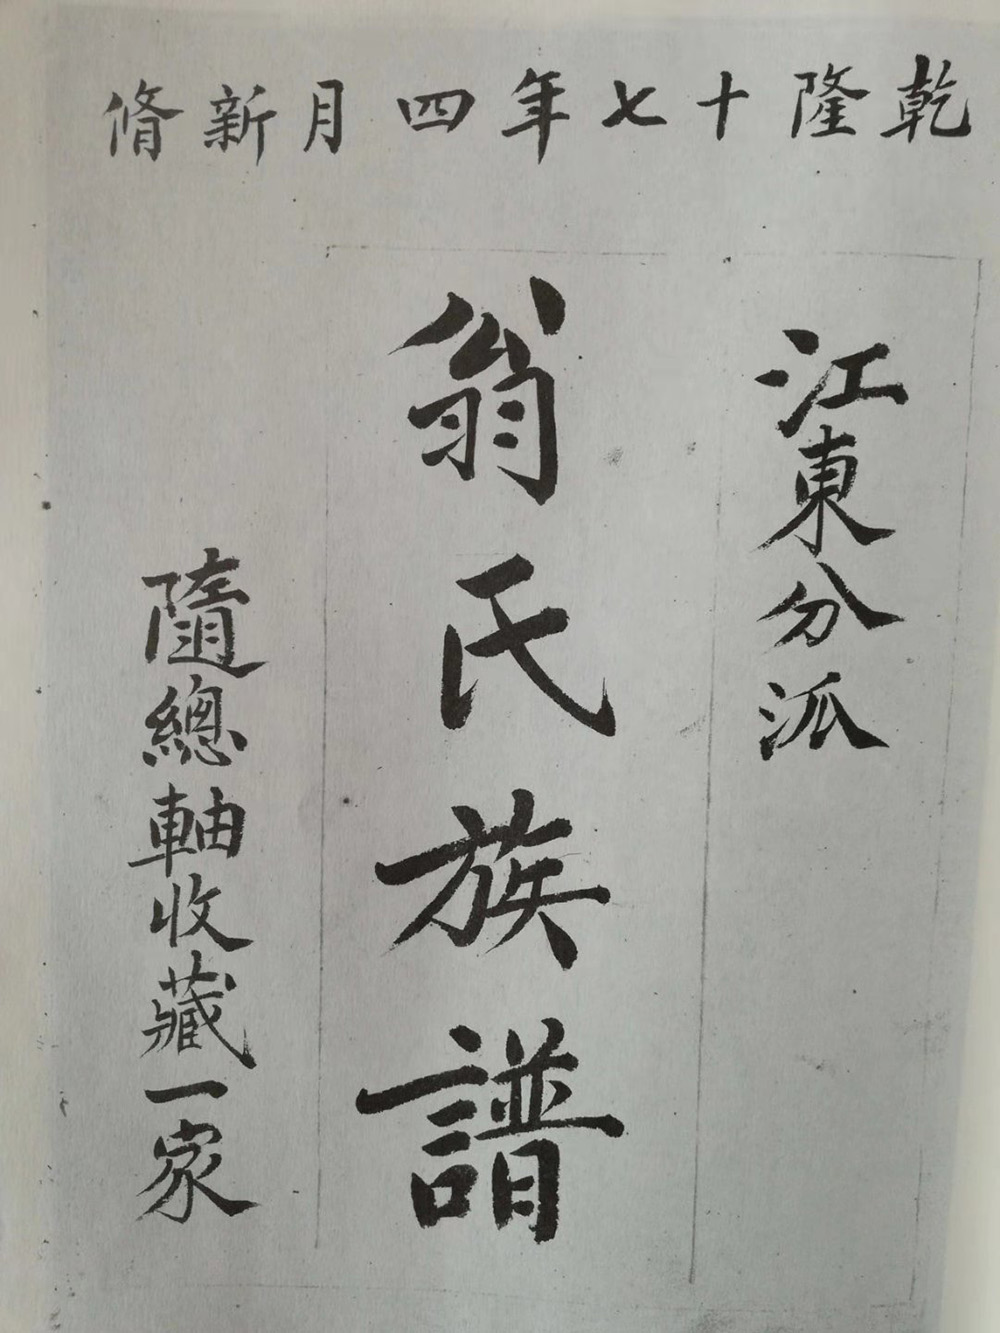 乾隆十七年四月新脩
江東分派
翁氏族譜
隨總軸收藏一家